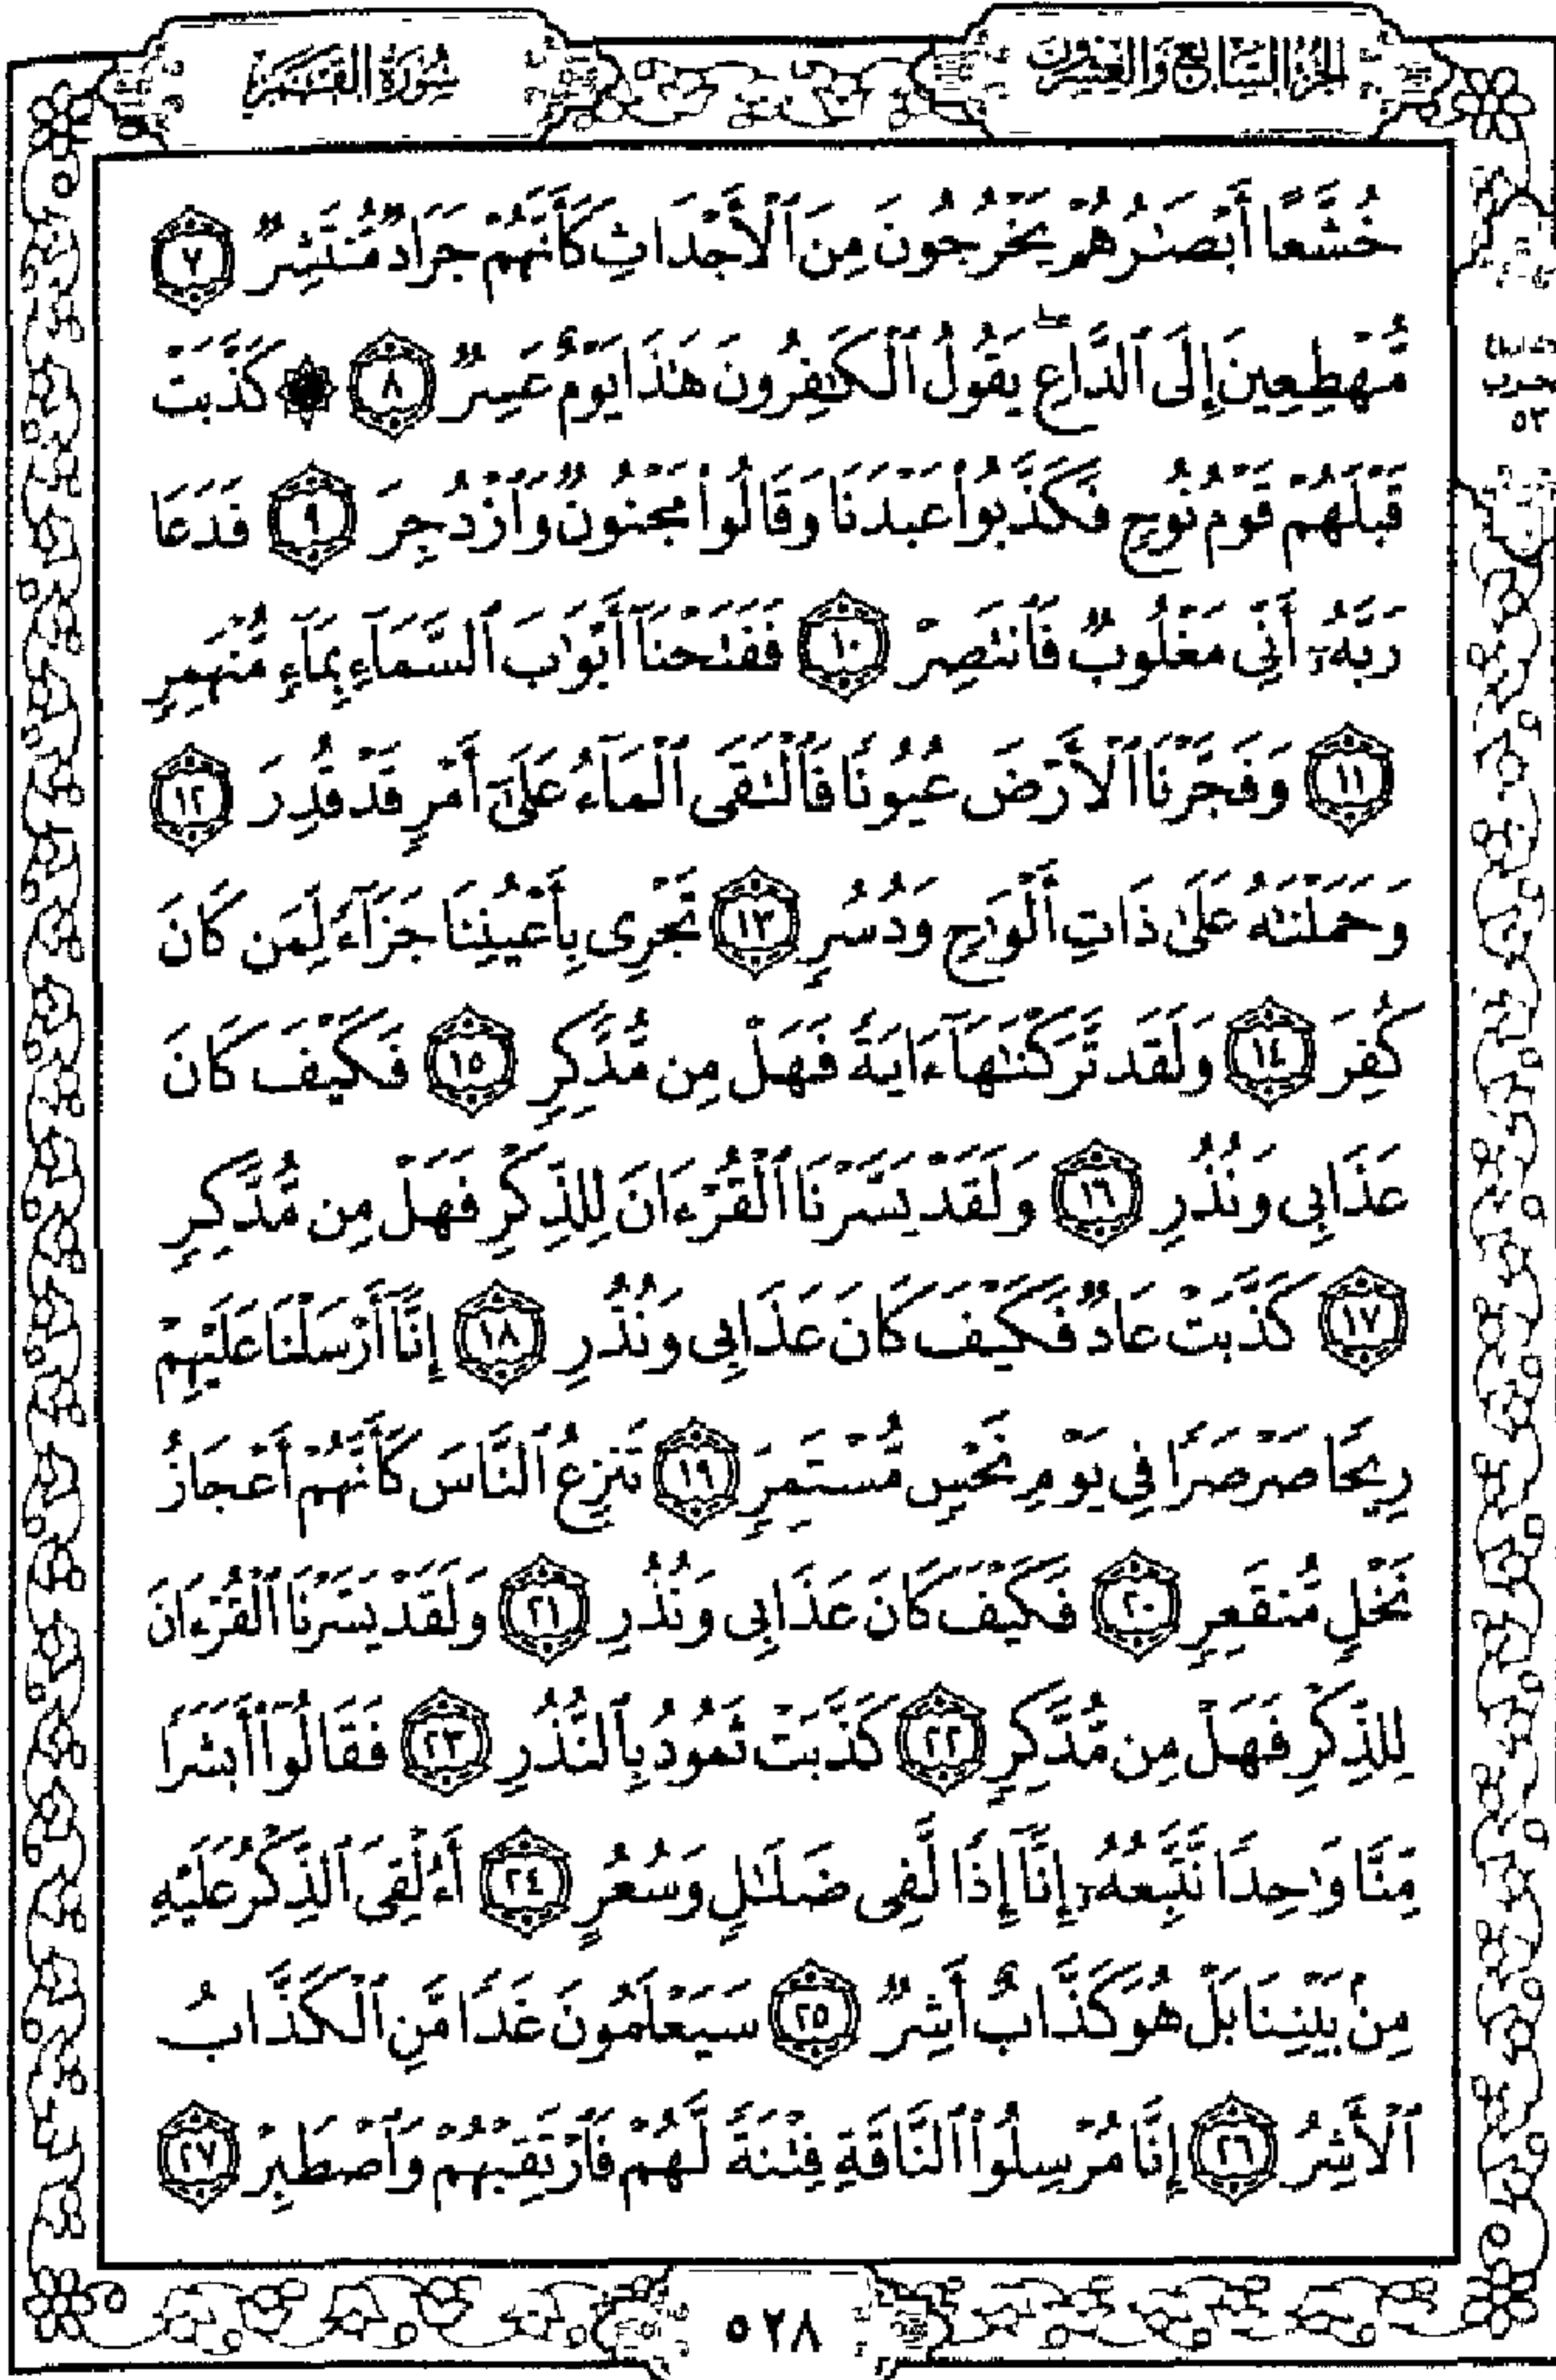 الجزء السابع والعشرون
سورة القمر
خُشَّعًا أَبْصَـٰرُهُمْ يَخْرُجُونَ مِنَ ٱلْأَجْدَاثِ كَأَنَّهُمْ جَرَادٌ مُّنتَشِرٌ ٧
مُّهْطِعِينَ إِلَى ٱلدَّاعِ ۖ يَقُولُ ٱلْكَـٰفِرُونَ هَـٰذَا يَوْمٌ عَسِرٌ ٨ ۞ كَذَّبَتْ
قَبْلَهُمْ قَوْمُ نُوحٍ فَكَذَّبُوا۟ عَبْدَنَا وَقَالُوا۟ مَجْنُونٌ وَٱزْدُجِرَ ٩ فَدَعَا
رَبَّهُۥٓ أَنِّى مَغْلُوبٌ فَٱنتَصِرْ ١٠ فَفَتَحْنَآ أَبْوَٰبَ ٱلسَّمَآءِ بِمَآءٍ مُّنْهَمِرٍ
١١ وَفَجَّرْنَا ٱلْأَرْضَ عُيُونًا فَٱلْتَقَى ٱلْمَآءُ عَلَىٰٓ أَمْرٍ قَدْ قُدِرَ ١٢
وَحَمَلْنَـٰهُ عَلَىٰ ذَاتِ أَلْوَٰحٍ وَدُسُرٍ ١٣ تَجْرِى بِأَعْيُنِنَا جَزَآءً لِّمَن كَانَ
كُفِرَ ١٤ وَلَقَد تَّرَكْنَـٰهَآ ءَايَةً فَهَلْ مِن مُّدَّكِرٍ ١٥ فَكَيْفَ كَانَ
عَذَابِى وَنُذُرِ ١٦ وَلَقَدْ يَسَّرْنَا ٱلْقُرْءَانَ لِلذِّكْرِ فَهَلْ مِن مُّدَّكِرٍ
١٧ كَذَّبَتْ عَادٌ فَكَيْفَ كَانَ عَذَابِى وَنُذُرِ ١٨ إِنَّآ أَرْسَلْنَا عَلَيْهِمْ
رِيحًا صَرْصَرًا فِى يَوْمِ نَحْسٍ مُّسْتَمِرٍّ ١٩ تَنزِعُ ٱلنَّاسَ كَأَنَّهُمْ أَعْجَازُ
نَخْلٍ مُّنقَعِرٍ ٢٠ فَكَيْفَ كَانَ عَذَابِى وَنُذُرِ ٢١ وَلَقَدْ يَسَّرْنَا ٱلْقُرْءَانَ
لِلذِّكْرِ فَهَلْ مِن مُّدَّكِرٍ ٢٢ كَذَّبَتْ ثَمُودُ بِٱلنُّذُرِ ٢٣ فَقَالُوٓا۟ أَبَشَرًا
مِّنَّا وَٰحِدًا نَّتَّبِعُهُۥٓ إِنَّآ إِذًا لَّفِى ضَلَـٰلٍ وَسُعُرٍ ٢٤ أَءُلْقِىَ ٱلذِّكْرُ عَلَيْهِ
مِنۢ بَيْنِنَا بَلْ هُوَ كَذَّابٌ أَشِرٌ ٢٥ سَيَعْلَمُونَ غَدًا مَّنِ ٱلْكَذَّابُ
ٱلْأَشِرُ ٢٦ إِنَّا مُرْسِلُوا۟ ٱلنَّاقَةِ فِتْنَةً لَّهُمْ فَٱرْتَقِبْهُمْ وَٱصْطَبِرْ ٢٧
٥٢٨